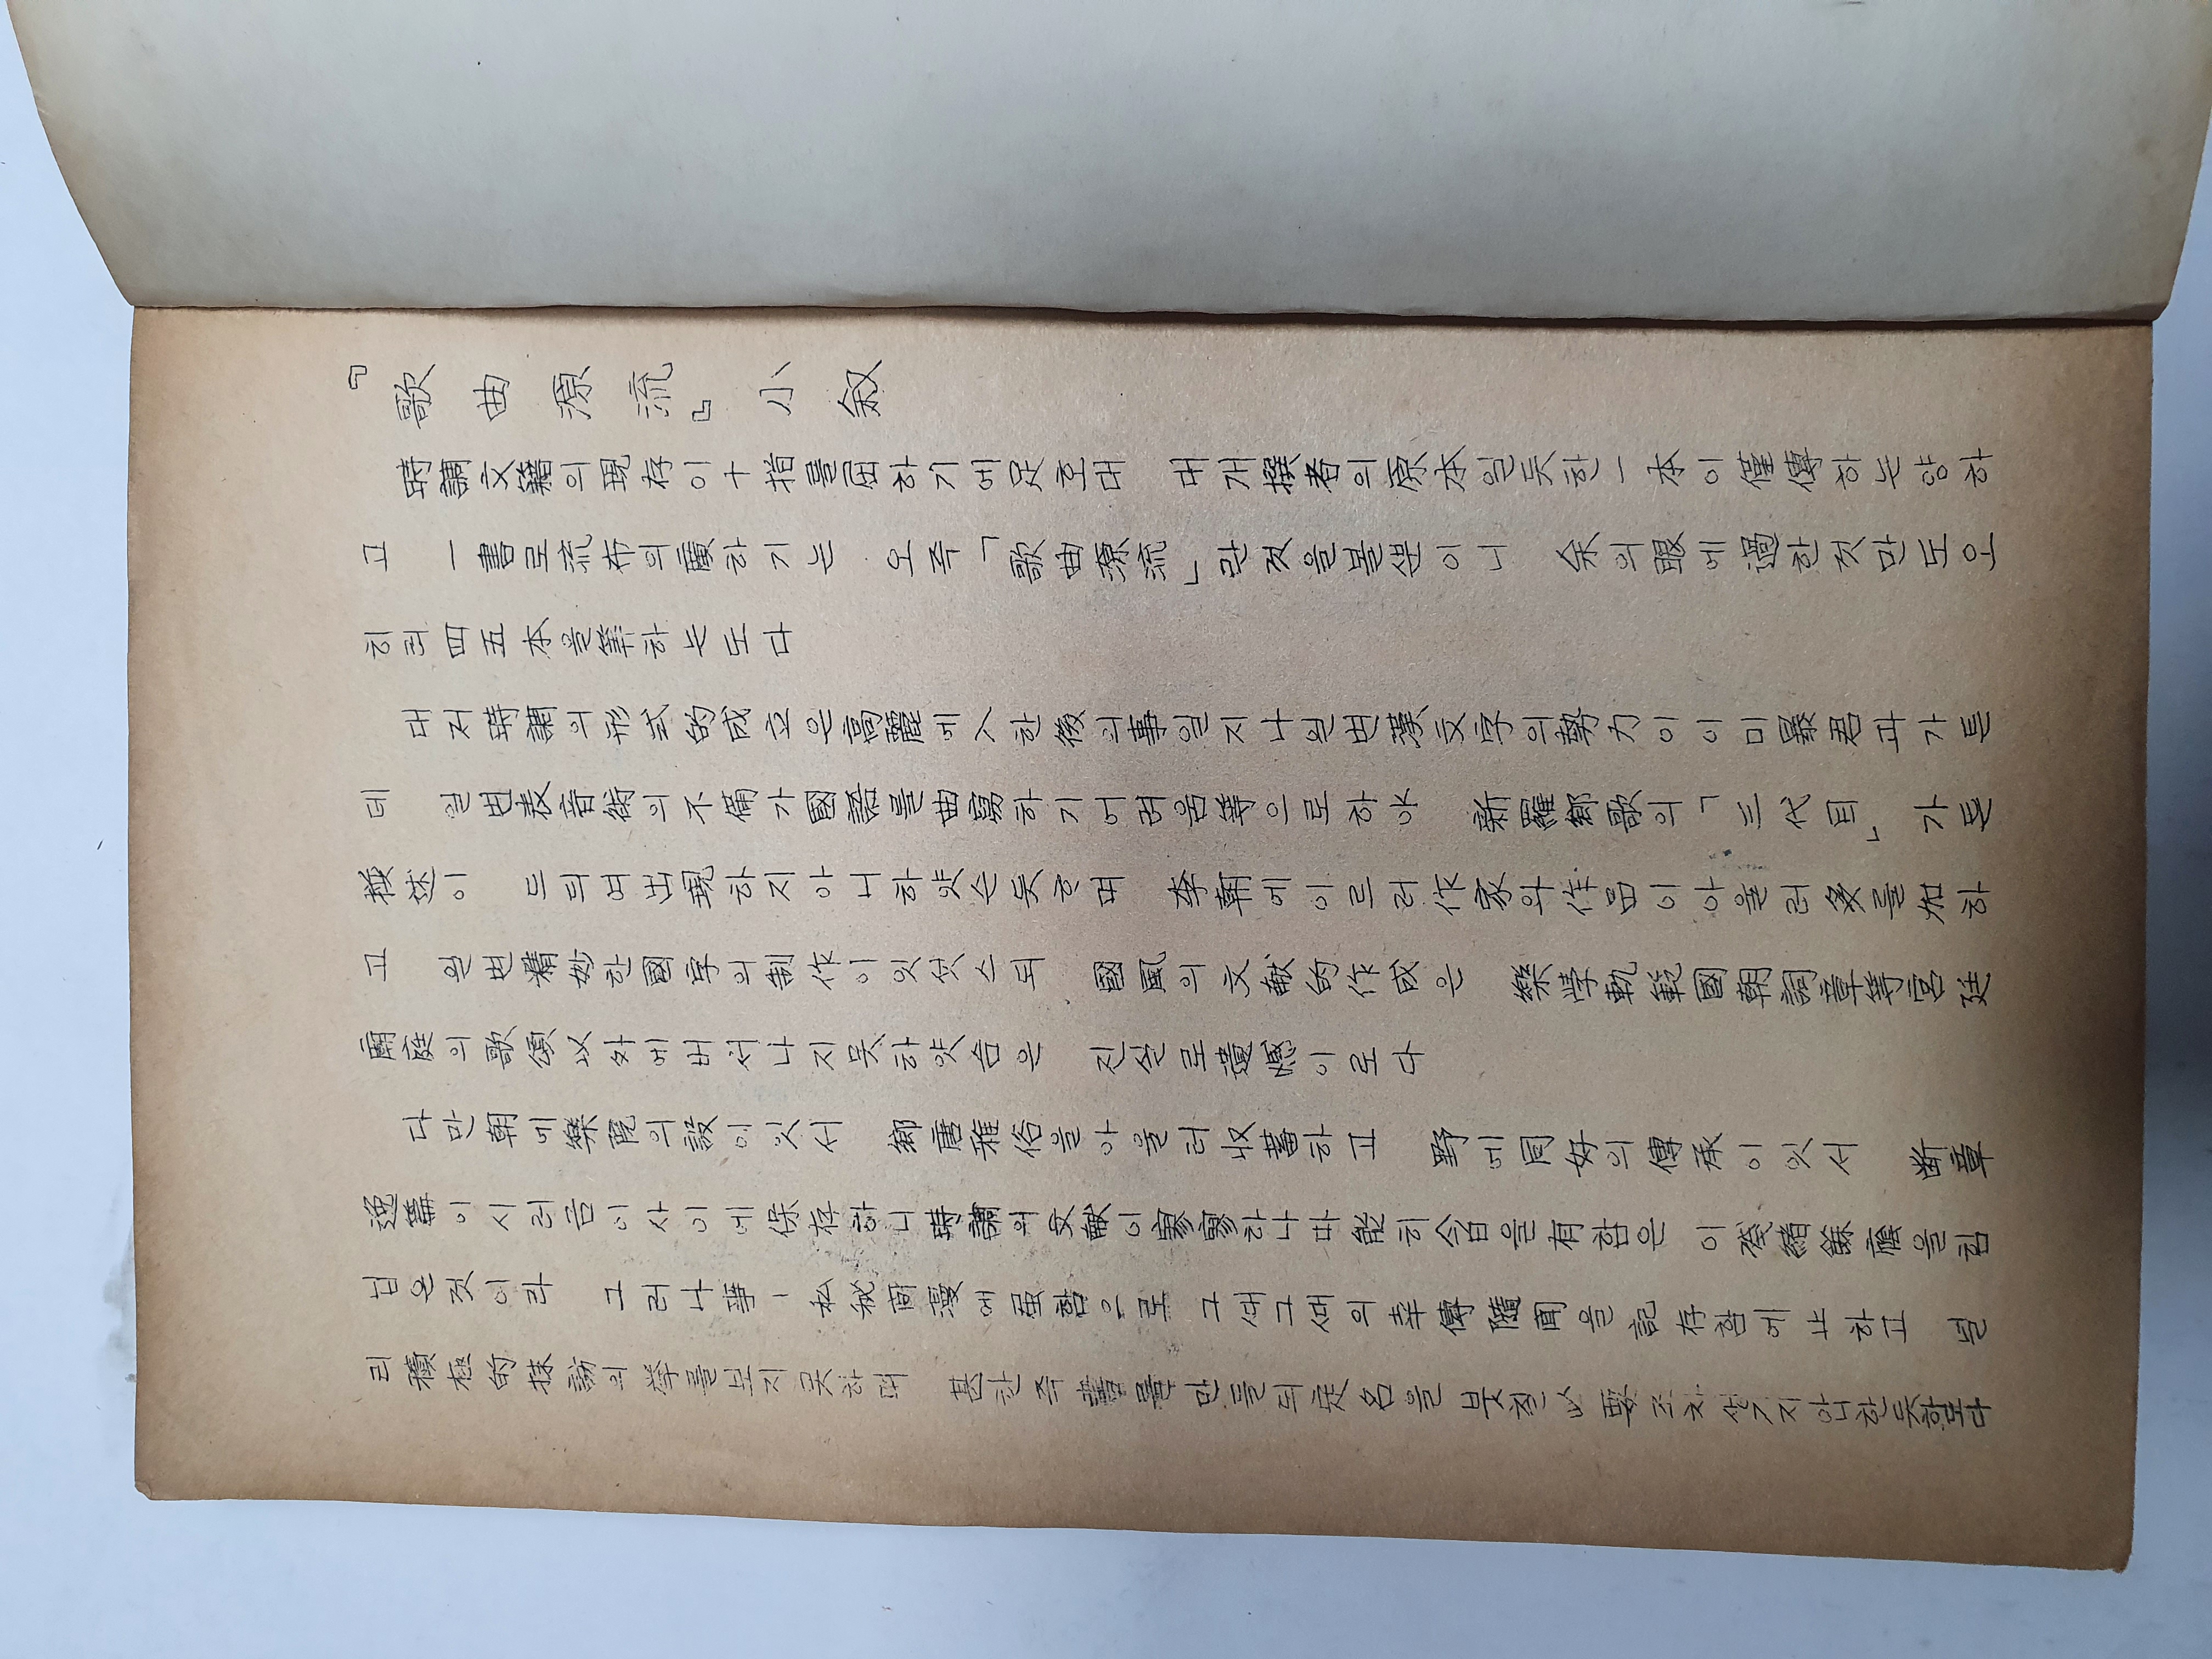 『歌曲源流』小敍
時調文籍의現存이十指를屈하기에足호대 대개撰者의原本인듯한一本이僅傳하는양하
고 一書로流布의廣하기는 오즉「歌曲源流」란것을볼뿐이니 余의眼에過한것만도오
히려四五本을算하는도다
대저時調의形式的成立은高麗에入한後의事일지나한번漢文字의勢力이이미嚴君과가튼
데 한번表音術의不備가國語를曲寫하기어려음等으로하야 新羅鄕歌의「三代目」가튼
撰述이 드듸여出現하지아니하얏슨듯호며 李朝에이르러作家와作品이아울러多를加하
고 한번精妙한國字의制作이잇섯스되 國風의文獻的作成은 樂學軌範國朝詞章等宮廷
廟庭의歌頌以外에버서나지못하얏슴은 진실로遺憾이로다
다만朝에樂院의設이잇서 鄕唐雅俗을아울러收蓄하고 野에同好의傳承이잇서 斷章
逸篇이시러금이사이에保存하니時調의文獻이寥寥하나마能히今日을有함은 이殘緖餘蔭을힘
닙은것이라 그러나事ㅣ私秘簡漫에虽함으로 그때그때의幸傳隨聞을記存함에止하고 널
리積極的採訪의擧를보지못하며 甚한즉書를만들되定名을붓친以 조차생기지아니한듯하도다